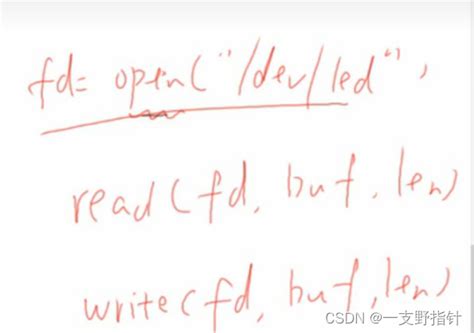 fd= open("/dev/led",
read(fd, buf, len)
write(fd, buf, len)
CSDN @一支野指针